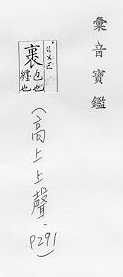 彙音寶鑑
裹 包也 纏也
(高上上聲.
P291)